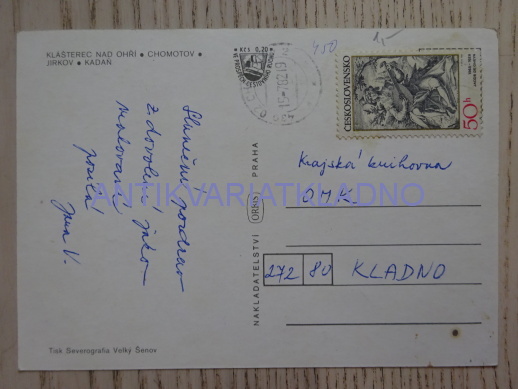 KLAŠTEREC NAD OHŘÍ • CHOMOTOV •
JIRKOV • KADAŇ
Slunečný pozdrav
z dovolené jako
malovaná
posílá
Jana V.
Tisk Severografia Velký Šenov
NAKLADATELSTVÍ ORBIS PRAHA
Kčs 0,20
450
1,-
ČESKOSLOVENSKO
50h
Krajská knihovna
OMK
272 80 KLADNO
ANTIKVARIATKLADNO